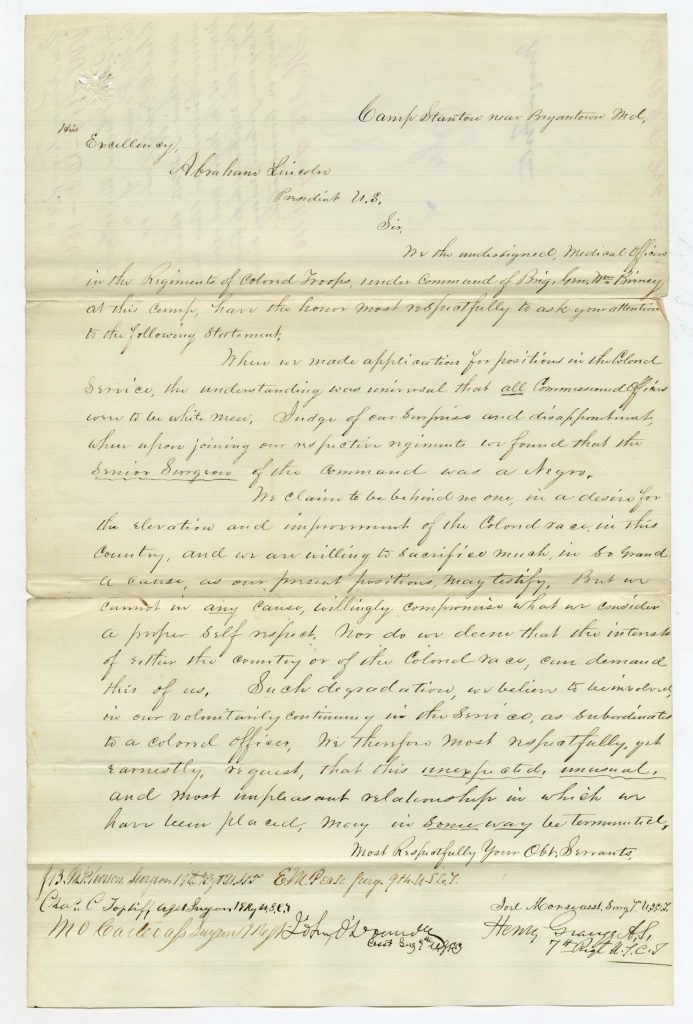 Camp Stanton near Bryantown Md,
His
Excellency,
Abraham Lincoln
President U.S,
Sir,
We the undersigned, Medical Officers
in the Regiments of Colored Troops, under Command of Brig. Gen, Wm Birney
at this Camp, have the honor most respectfully to ask your attention
to the following Statement.
When we made application for positions in the Colored
Service, the understanding was universal that all Commissioned Officers
were to be white men. Judge of our Surprise and disappointment,
when upon joining our respective regiments we found that the
Senior Surgeon of the command was a Negro.
We claim to be behind no one, in a desire for
the elevation and improvement of the Colored race, in this
Country, and we are willing to sacrifice much, in so grand
a cause, as our present positions, may testify. But we
cannot in any cause, willingly compromise what we consider
a proper self respect. Nor do we deem that the interests
of either the country or of the Colored race, can demand
this of us. Such degradation, we believe to be involved,
in our voluntarily continuing in the Service, as Subordinates
to a colored officer, We therefore most respectfully, yet
earnestly, request, that this unexpected, unusual,
and most unpleasant relationship in which we
have been placed, may in some way be terminated,
Most Respectfully Your Obt. Servants,
Surgeon E. M. Pease Surg. 9th U.S.C.T.
Chas. C. Topliff, Surgeon
Joel Morse
M O Carter Surgeon 7 Regt
Henry Grange A.S.
7th Regt U.S.C.T